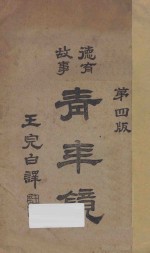 第四版
德育
故事
青年镜
王完白譯